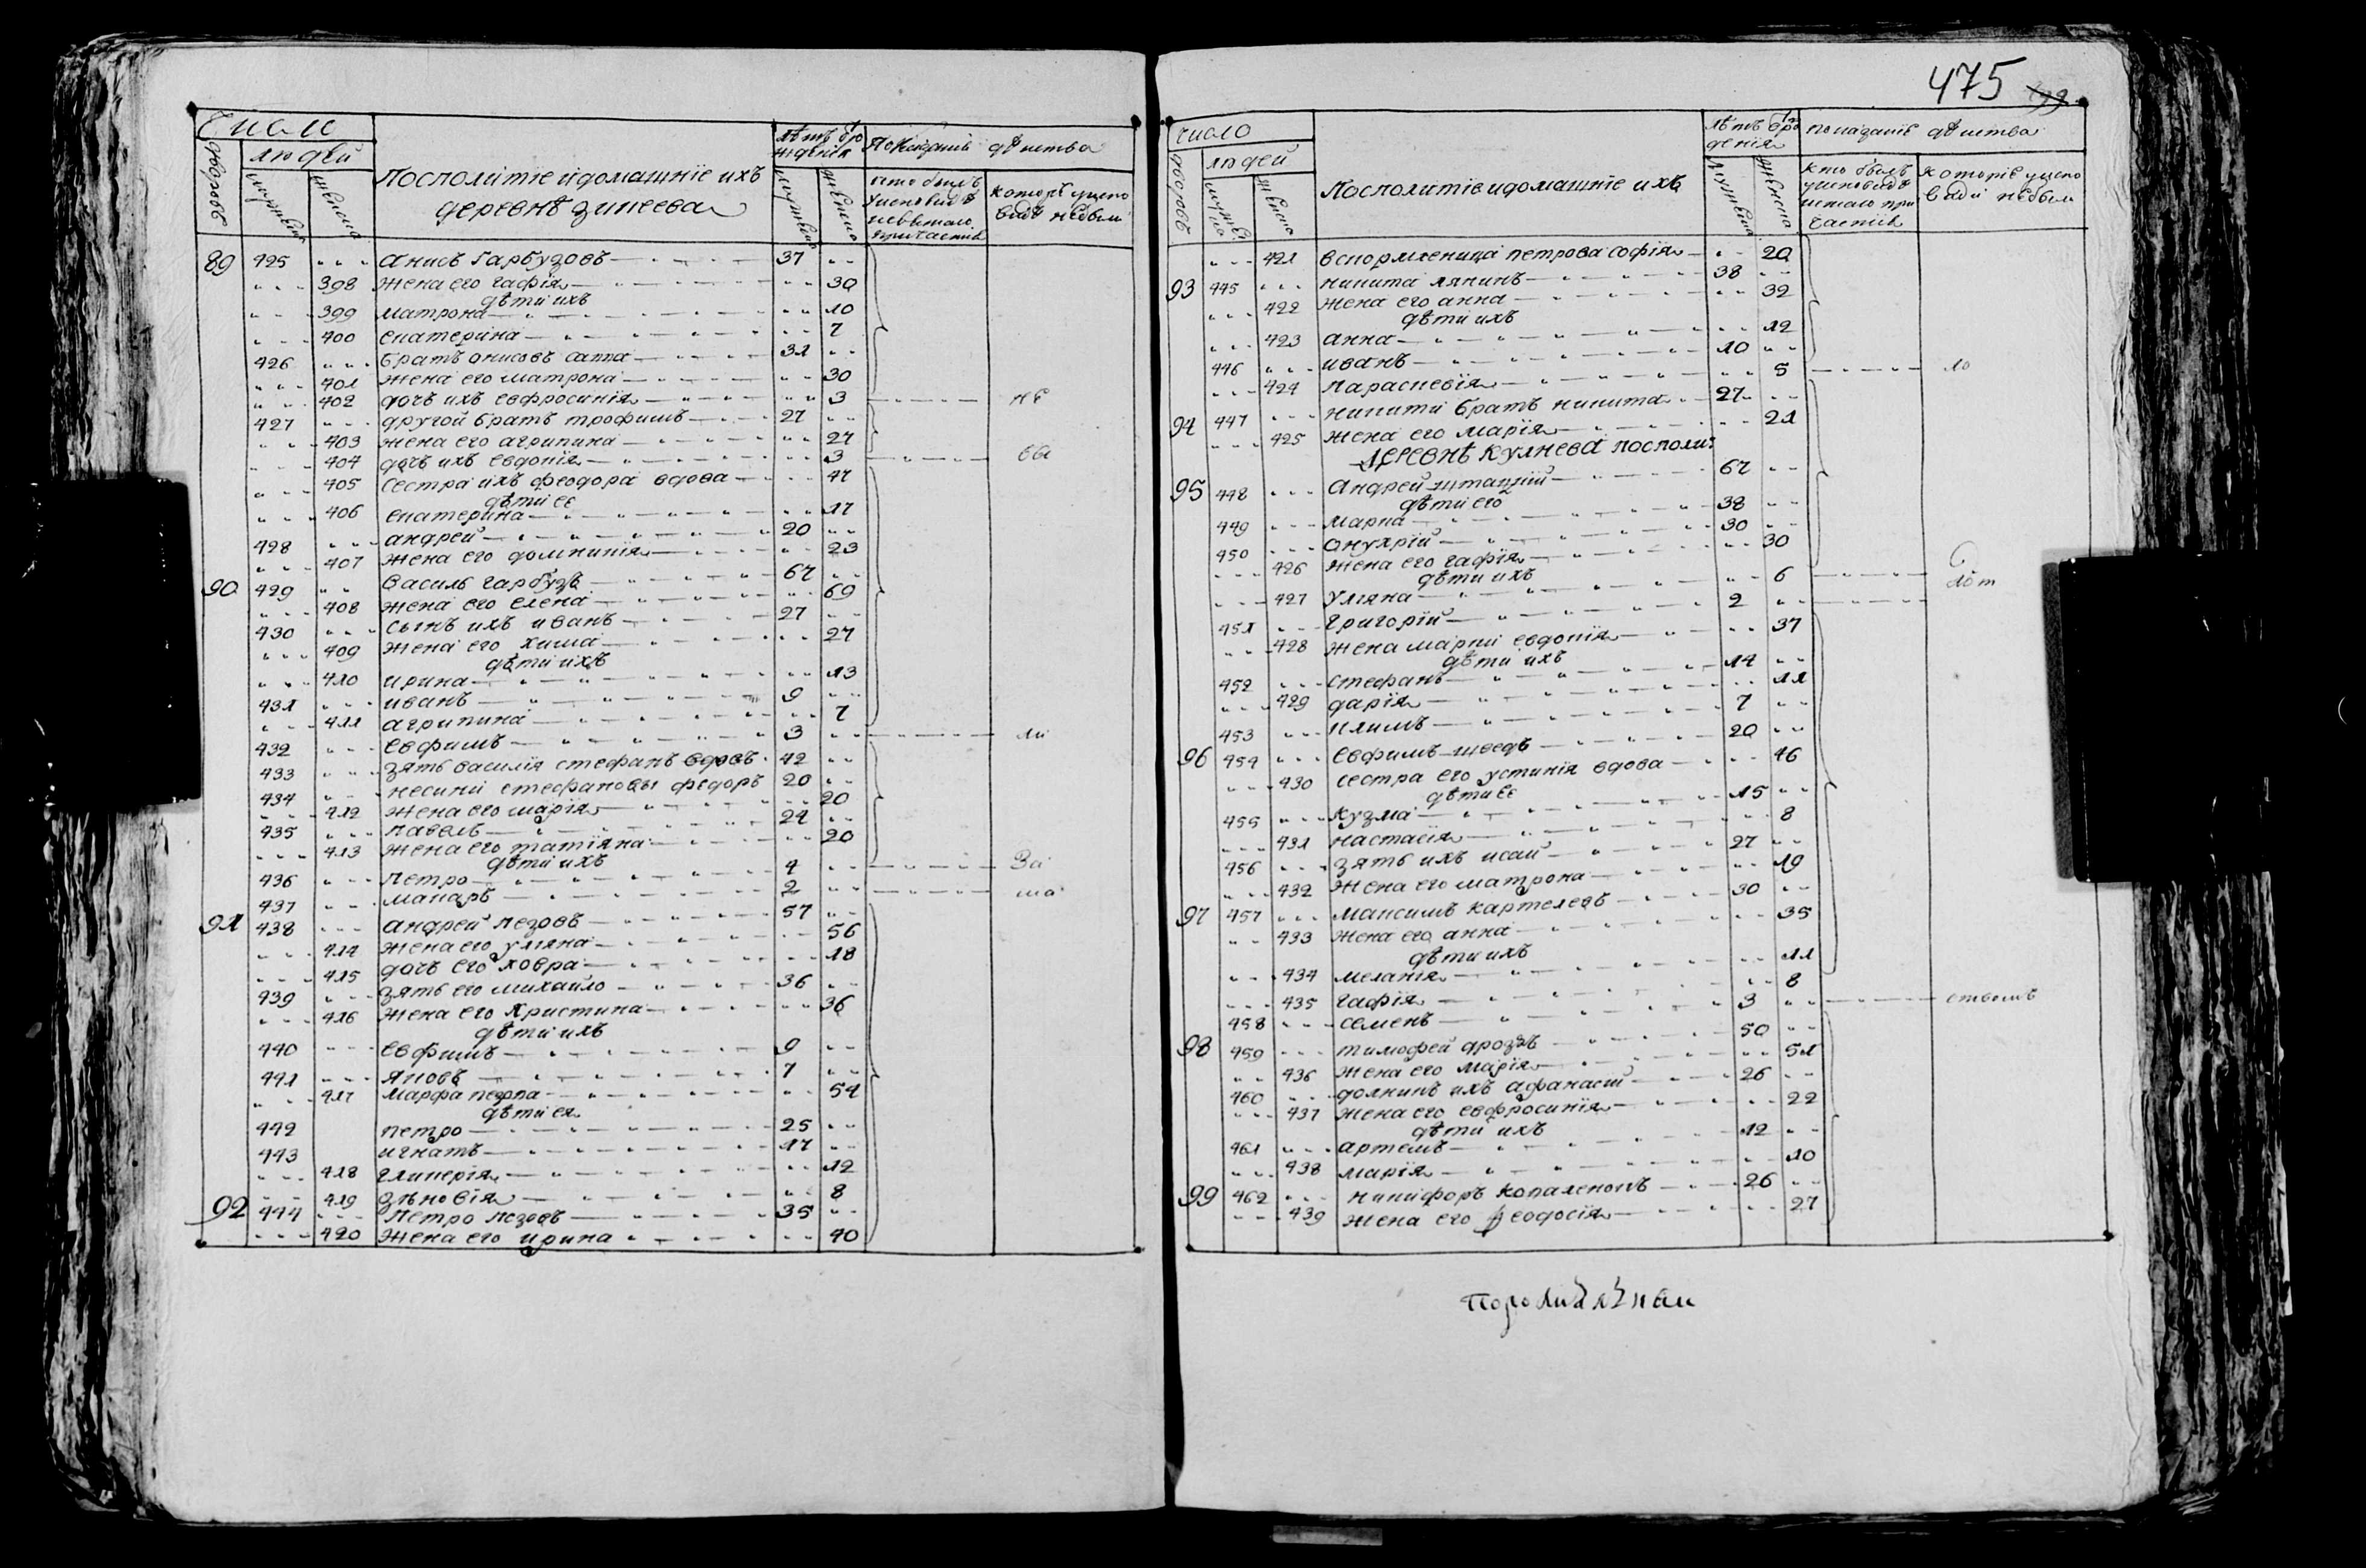 475
Число
людей
дворовъ
мужеска
женска
Посполитіе и домашніе ихъ
деревнѣ зинеева
лѣтъ от ро
жденія
мужеска
женска
Показаніе дѣйства
кто былъ
у исповѣди
и с̃ваго
причастия
которіе у испо
веди небыли
89 425 анисъ Гарбузовъ 37
398 жена его гафія 30
дѣти ихъ
399 матрона 10
400 екатерина 7
426 братъ онисовъ сапа 31
401 жена его матрона 30
402 дочь ихъ евфросинія 3 не
427 другой братъ трофимъ 27
403 жена его агрипина 24
404 дочь ихъ евдокія 3 бы
405 сестра ихъ феодора вдова 47
дѣти ее
406 екатерина 17
428 андрей 20
407 жена его домникія 23
90 429 василь гарбузъ 67
408 жена его елена 69
430 сынъ ихъ иванъ 27
409 жена его хима 27
дѣти ихъ
410 ирина 13
431 иванъ 9
411 агрипина 7
432 евфимъ 3 ли
433 зять василія стефанъ вдовъ 42
434 несини стефановы федоръ 20
412 жена его марія 20
435 павелъ 24
413 жена его татіяна 20
дѣти ихъ
436 петро 4 За
437 макаръ 2 ма
91 438 андрей лезовъ 57
414 жена его уляна 56
415 дочь его ховра 18
439 зять его михайло 36
416 жена его христина 36
дѣти ихъ
440 евфимъ 9
441 яковъ 7
417 марфа 54
дѣти ея
442 петро 25
443 игнатъ 17
418 гликерія 12
419 зѣновія 8
92 444 петро лезовъ 35
420 жена его ирина 40
число
людей
дворовъ
мужеска
женска
Посполитіе и домашніе ихъ
лѣтъ от ро
денія
мужеска
женска
показаніе дѣйства
кто былъ
у исповѣди
и с̃таго при
частія
которіе у испо
веди небыли
421 вспормленица петрова софія 20
93 445 никита лянинъ 38
422 жена его анна 32
дѣти ихъ
423 анна 12
446 иванъ 10
424 параскевія 5 ло
94 447 никити братъ никита 27
425 жена его марія 21
деревнѣ кулнева посполи:
95 448 Андрей 67
дѣти его
449 марка 38
450 онуарій 30
426 жена его гафія 30
дѣти ихъ
427 уляна 6
451 григорій 2
428 жена марки евдокія 37
дѣти ихъ
452 стефанъ 14
429 дарія 11
453 климъ 7
96 454 евфимъ шведъ 20
430 сестра его устинія вдова 46
дѣти ее
455 кузма 15
431 настасія 8
456 зять ихъ исай 27
432 жена его матрона 19
97 457 максимъ картелевъ 30
433 жена его анна 35
дѣти ихъ
434 меланія 11
435 гафія 8
458 семенъ 3 ствомъ
98 459 тимофей дроздъ 50
436 жена его марія 51
460 должикъ ихъ афанасій 26
437 жена его евфросинія 22
дѣти ихъ
461 артемъ 12
438 марія 10
99 462 никифоръ копаленокъ 26
439 жена его феодосія 27